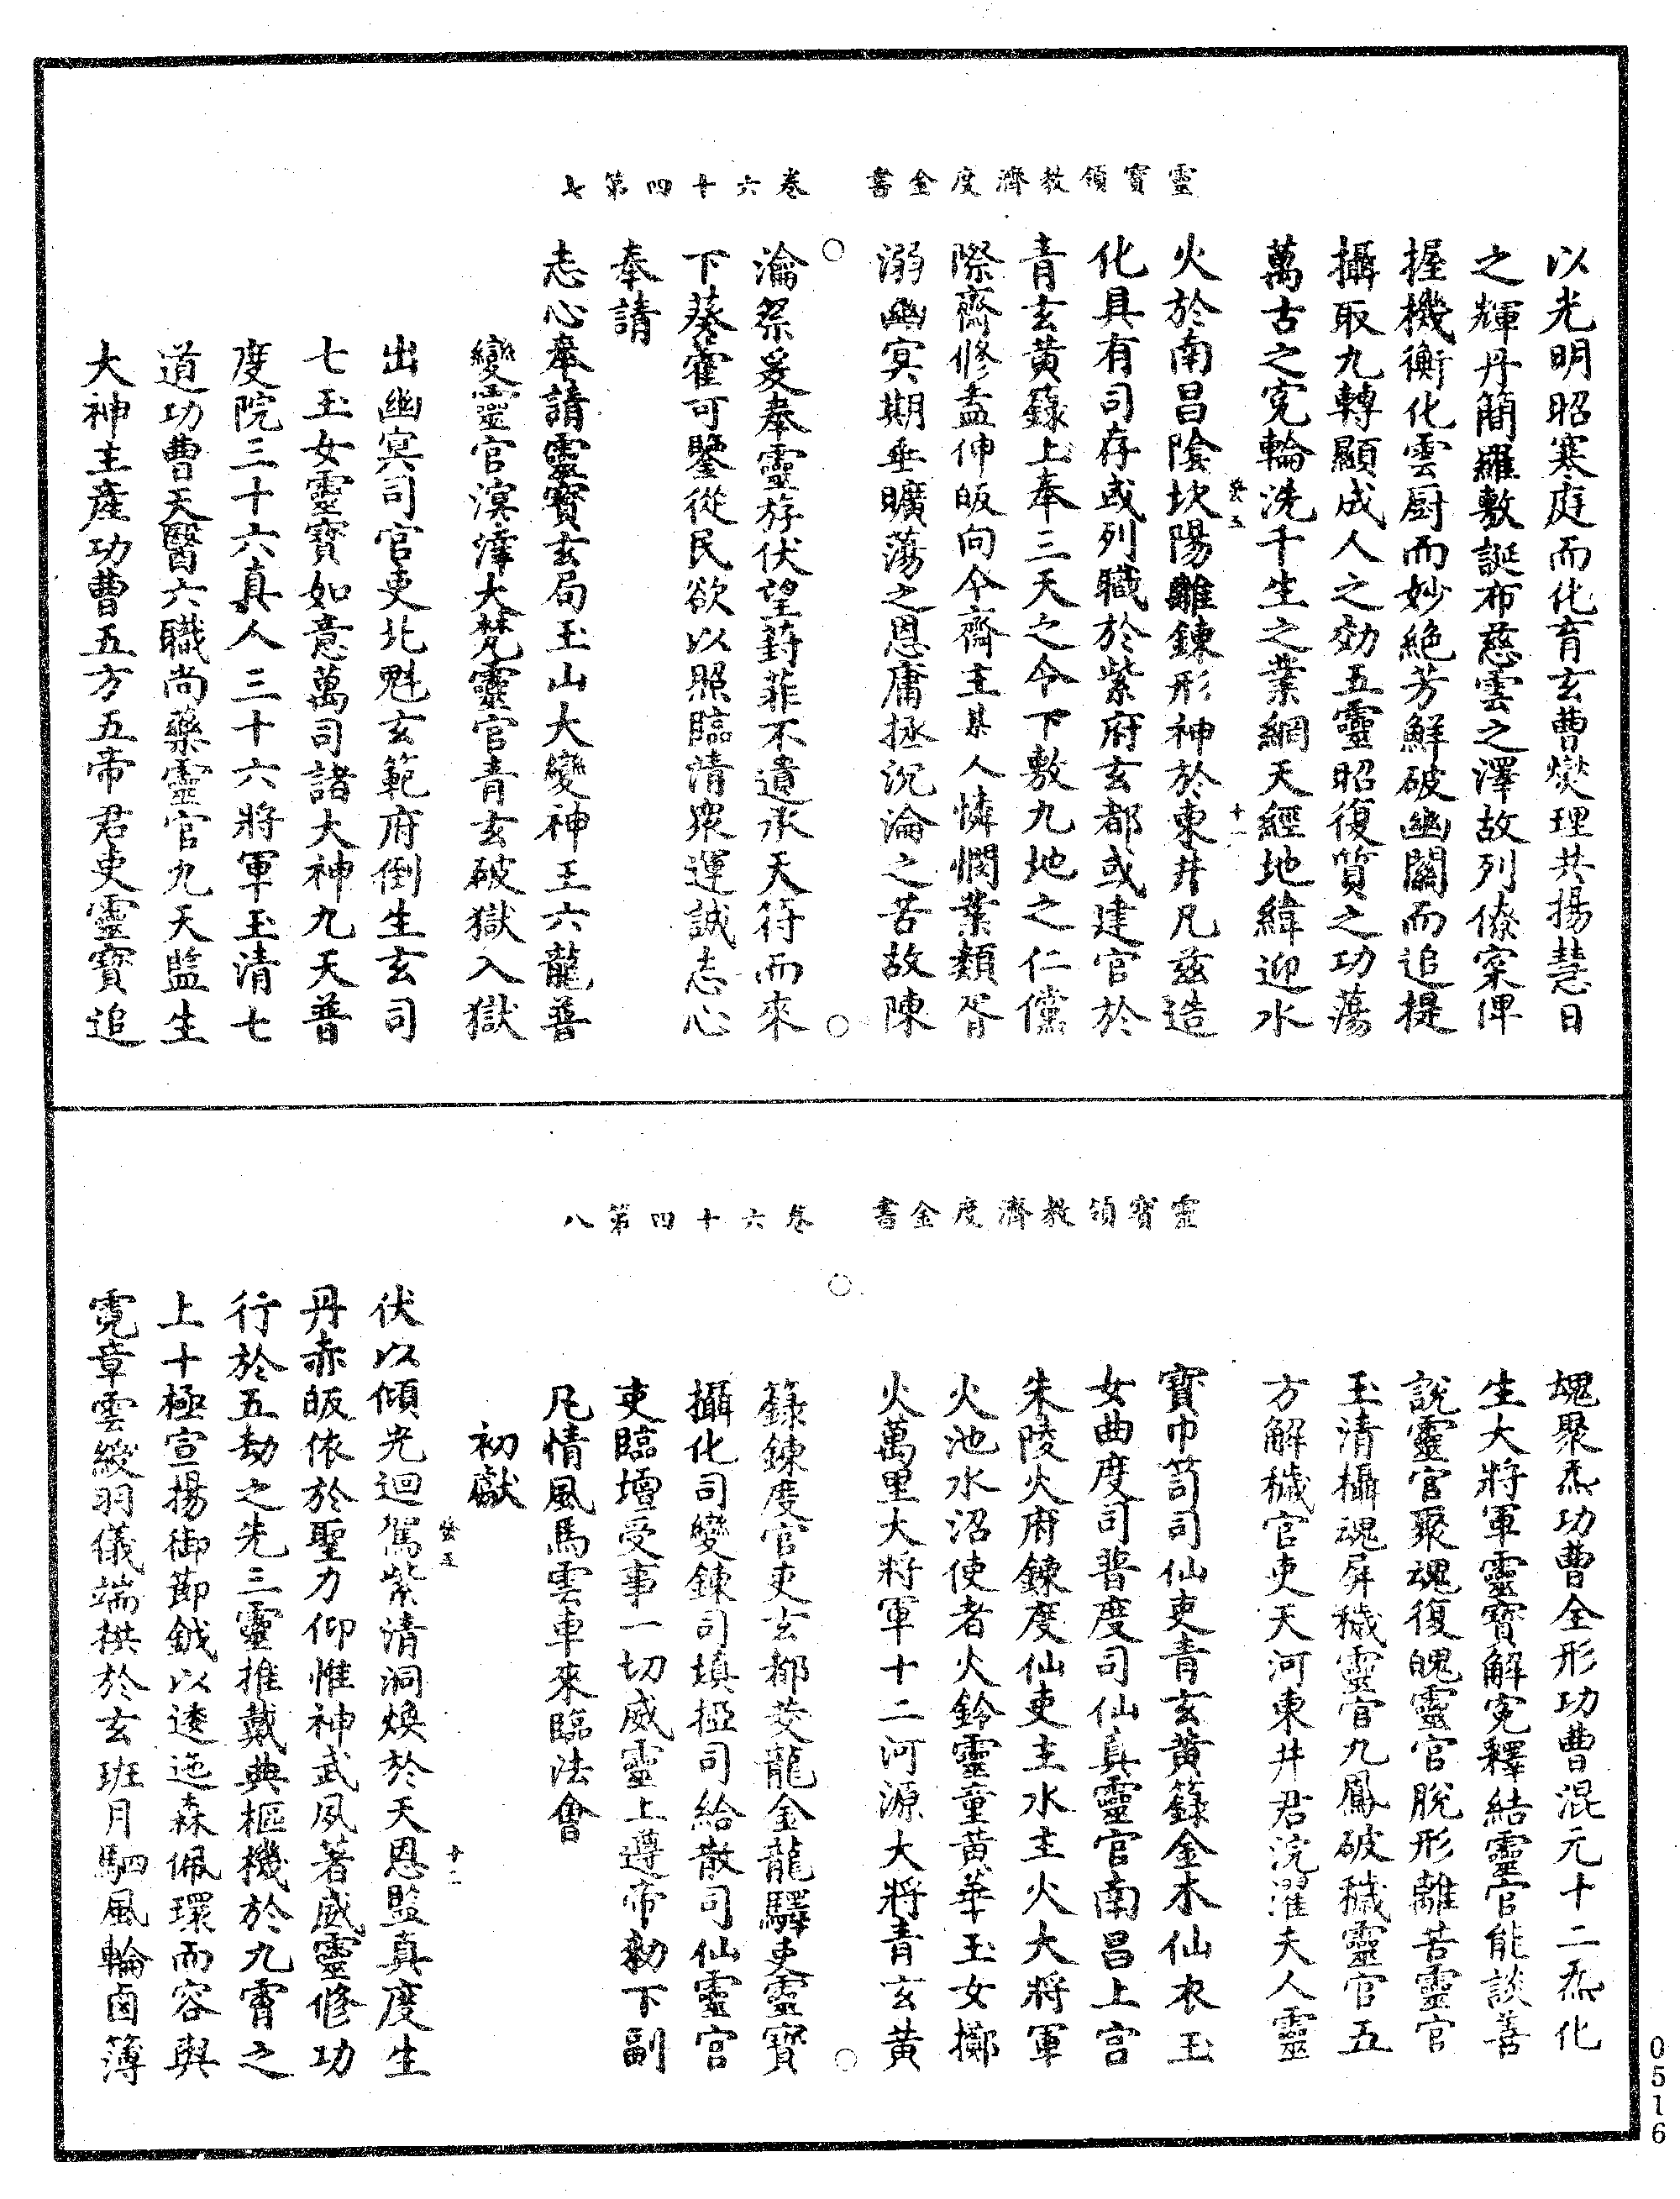 靈寶領教濟度金書　卷六十四第七
以光明昭寒庭而化育玄曹爕理共揚慧日
之輝丹簡羅敷誕布慈雲之澤故列僚寀俾
握機衡化雲厨而妙絶芳鮮破幽關而追提
攝取九轉顯成人之効五靈昭復質之功蕩
萬古之寃輪洗千生之業網天經地緯迎水
癸五　十一
火於南昌陰坎陽離鍊形神於東井凡兹造
化具有司存或列職於紫府玄都或建官於
青玄黄籙上奉三天之令下敷九地之仁儻
際齋修盍伸皈向今齋主某人憐憫業類胥
溺幽冥期垂曠蕩之恩庸拯沉淪之苦故陳
瀹祭爰奉靈存伏望葑菲不遺承天符而來
下葵藿可鑒從民欲以照臨清衆運誠志心
奉請
志心奉請靈寶玄局玉山大變神王六龍普
變靈官溟涬大梵靈官青玄破獄入獄
出幽冥司官吏北魁玄範府倒生玄司
七玉女靈寶如意萬司諸大神九天普
度院三十六真人三十六將軍玉清七
道功曹天醫六職尚藥靈官九天監生
大神主產功曹五方五帝君吏靈寶追
靈寶領教濟度金書　卷六十四第八
魂聚炁功曹全形功曹混元十二炁化
生大將軍靈寶解寃釋結靈官能談善
說靈官聚魂復魄靈官脫形離苦靈官
玉清攝魂屏穢靈官九鳳破穢靈官五
方解穢官吏天河東井君浣濯夫人靈
寶巾笥司仙吏青玄黄籙金木仙衣玉
女曲度司普度司仙真靈官南昌上宫
朱陵火府鍊度仙吏主水主火大將軍
火池水沼使者火鈴靈童黄華玉女擲
火萬里大將軍十二河源大將青玄黄
籙鍊度官吏玄都茭龍金龍驛吏靈寶
攝化司變鍊司填掗司給散司仙靈官
吏臨壇受事一切威靈上遵帝勑下副
凡情風馬雲車來臨法會
初獻
癸五　十二
伏以傾光迴駕紫清洞煥於天恩監真度生
丹赤皈依於聖力仰惟神武夙著威靈修功
行於五劫之先三靈推戴典樞機於九霄之
上十極宣揚御節鉞以逶迤森佩環而容與
霓章雲綬羽儀端拱於玄班月駟風輪鹵簿
0516